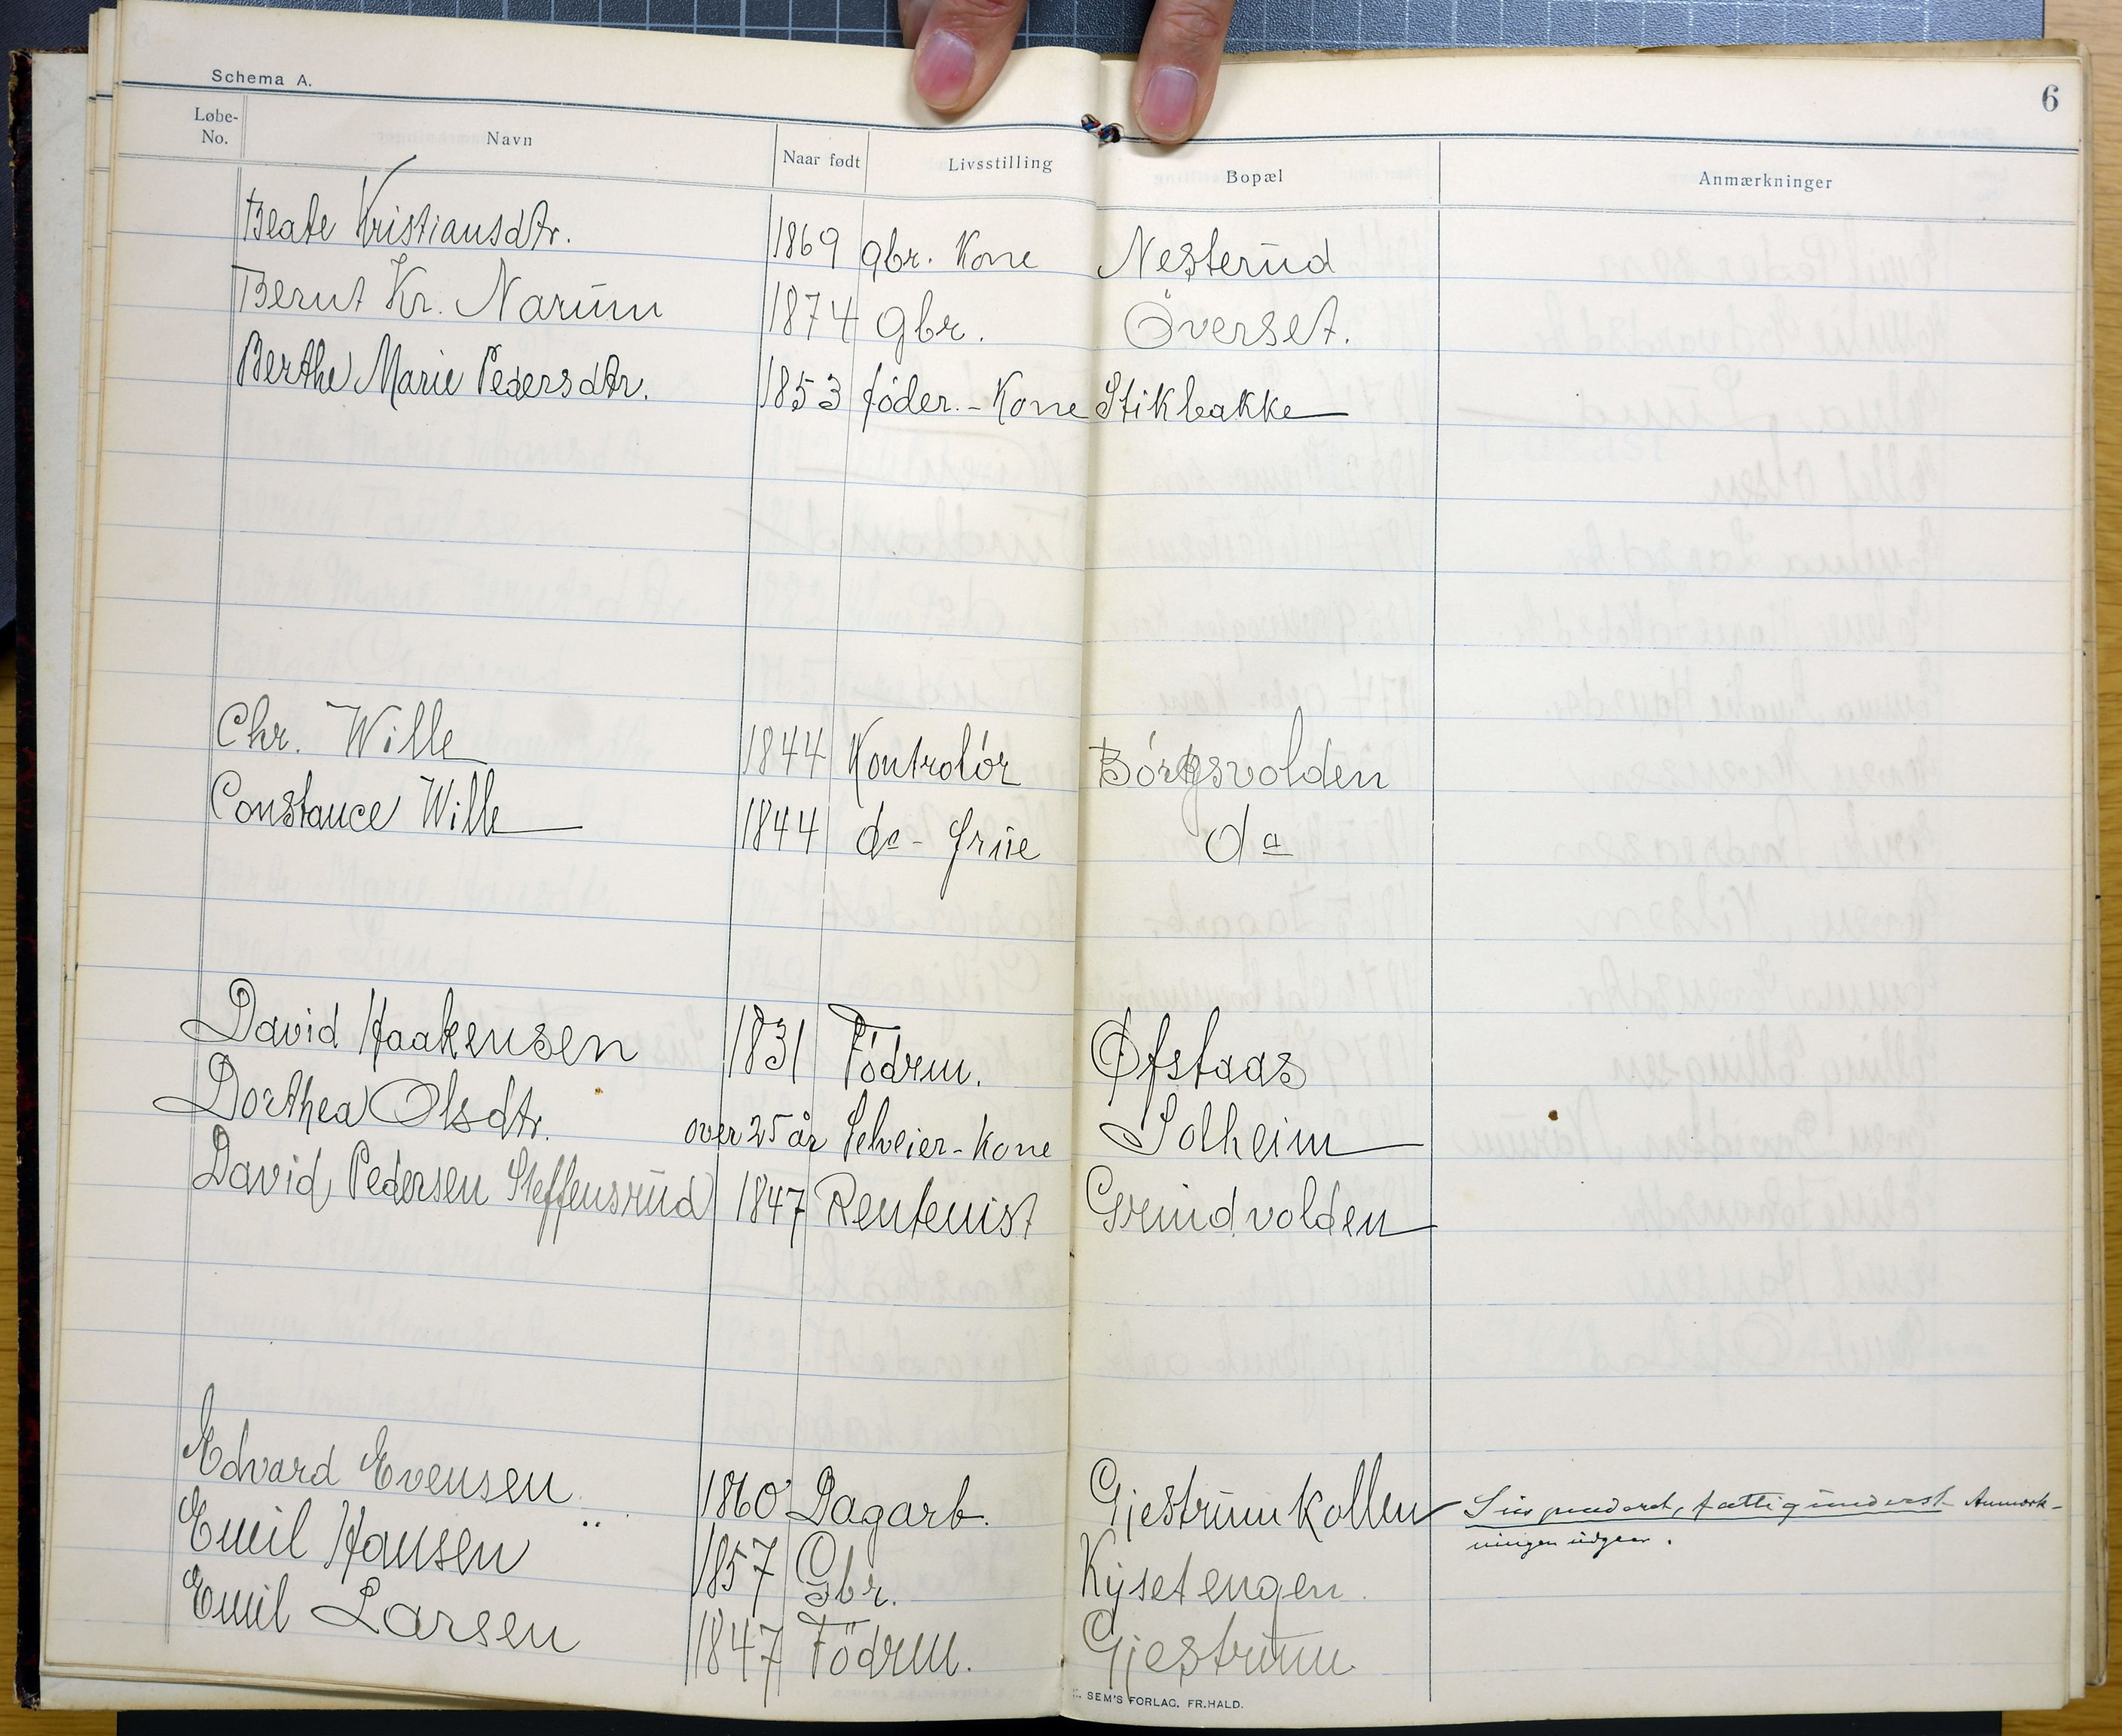 Schema A.
6
Løbe-No. Navn Naar født Livsstilling Bopæl Anmærkninger
Beate Kristiansdtr. 1869 gbr. Kone Nesterud
Bernt Kr. Narum 1874 gbr. Överset.
Berthe Marie Pedersdtr. 1853 föder.-Kone Stikbakke
Chr. Wille 1844 Kontrolör Börgsvolden
Constance Wille 1844 do- frue da
David Haakensen 1831 Födrm. Øfstaas
Dorthea Olsdtr. over 25 år Selveier-Kone Solheim
David Pedersen Steffensrud 1847 Rentenist Grindvolden
Edvard Evensen 1860 Dagarb. Gjestrumkollen Suspenderet, fattigunderst. Anmærk-
ningen udgaar.
Emil Hansen 1857 Gbr. Kysetengen
Emil Larsen 1847 Födrm. Gjestrum
SEM'S FORLAG, FR.HALD.